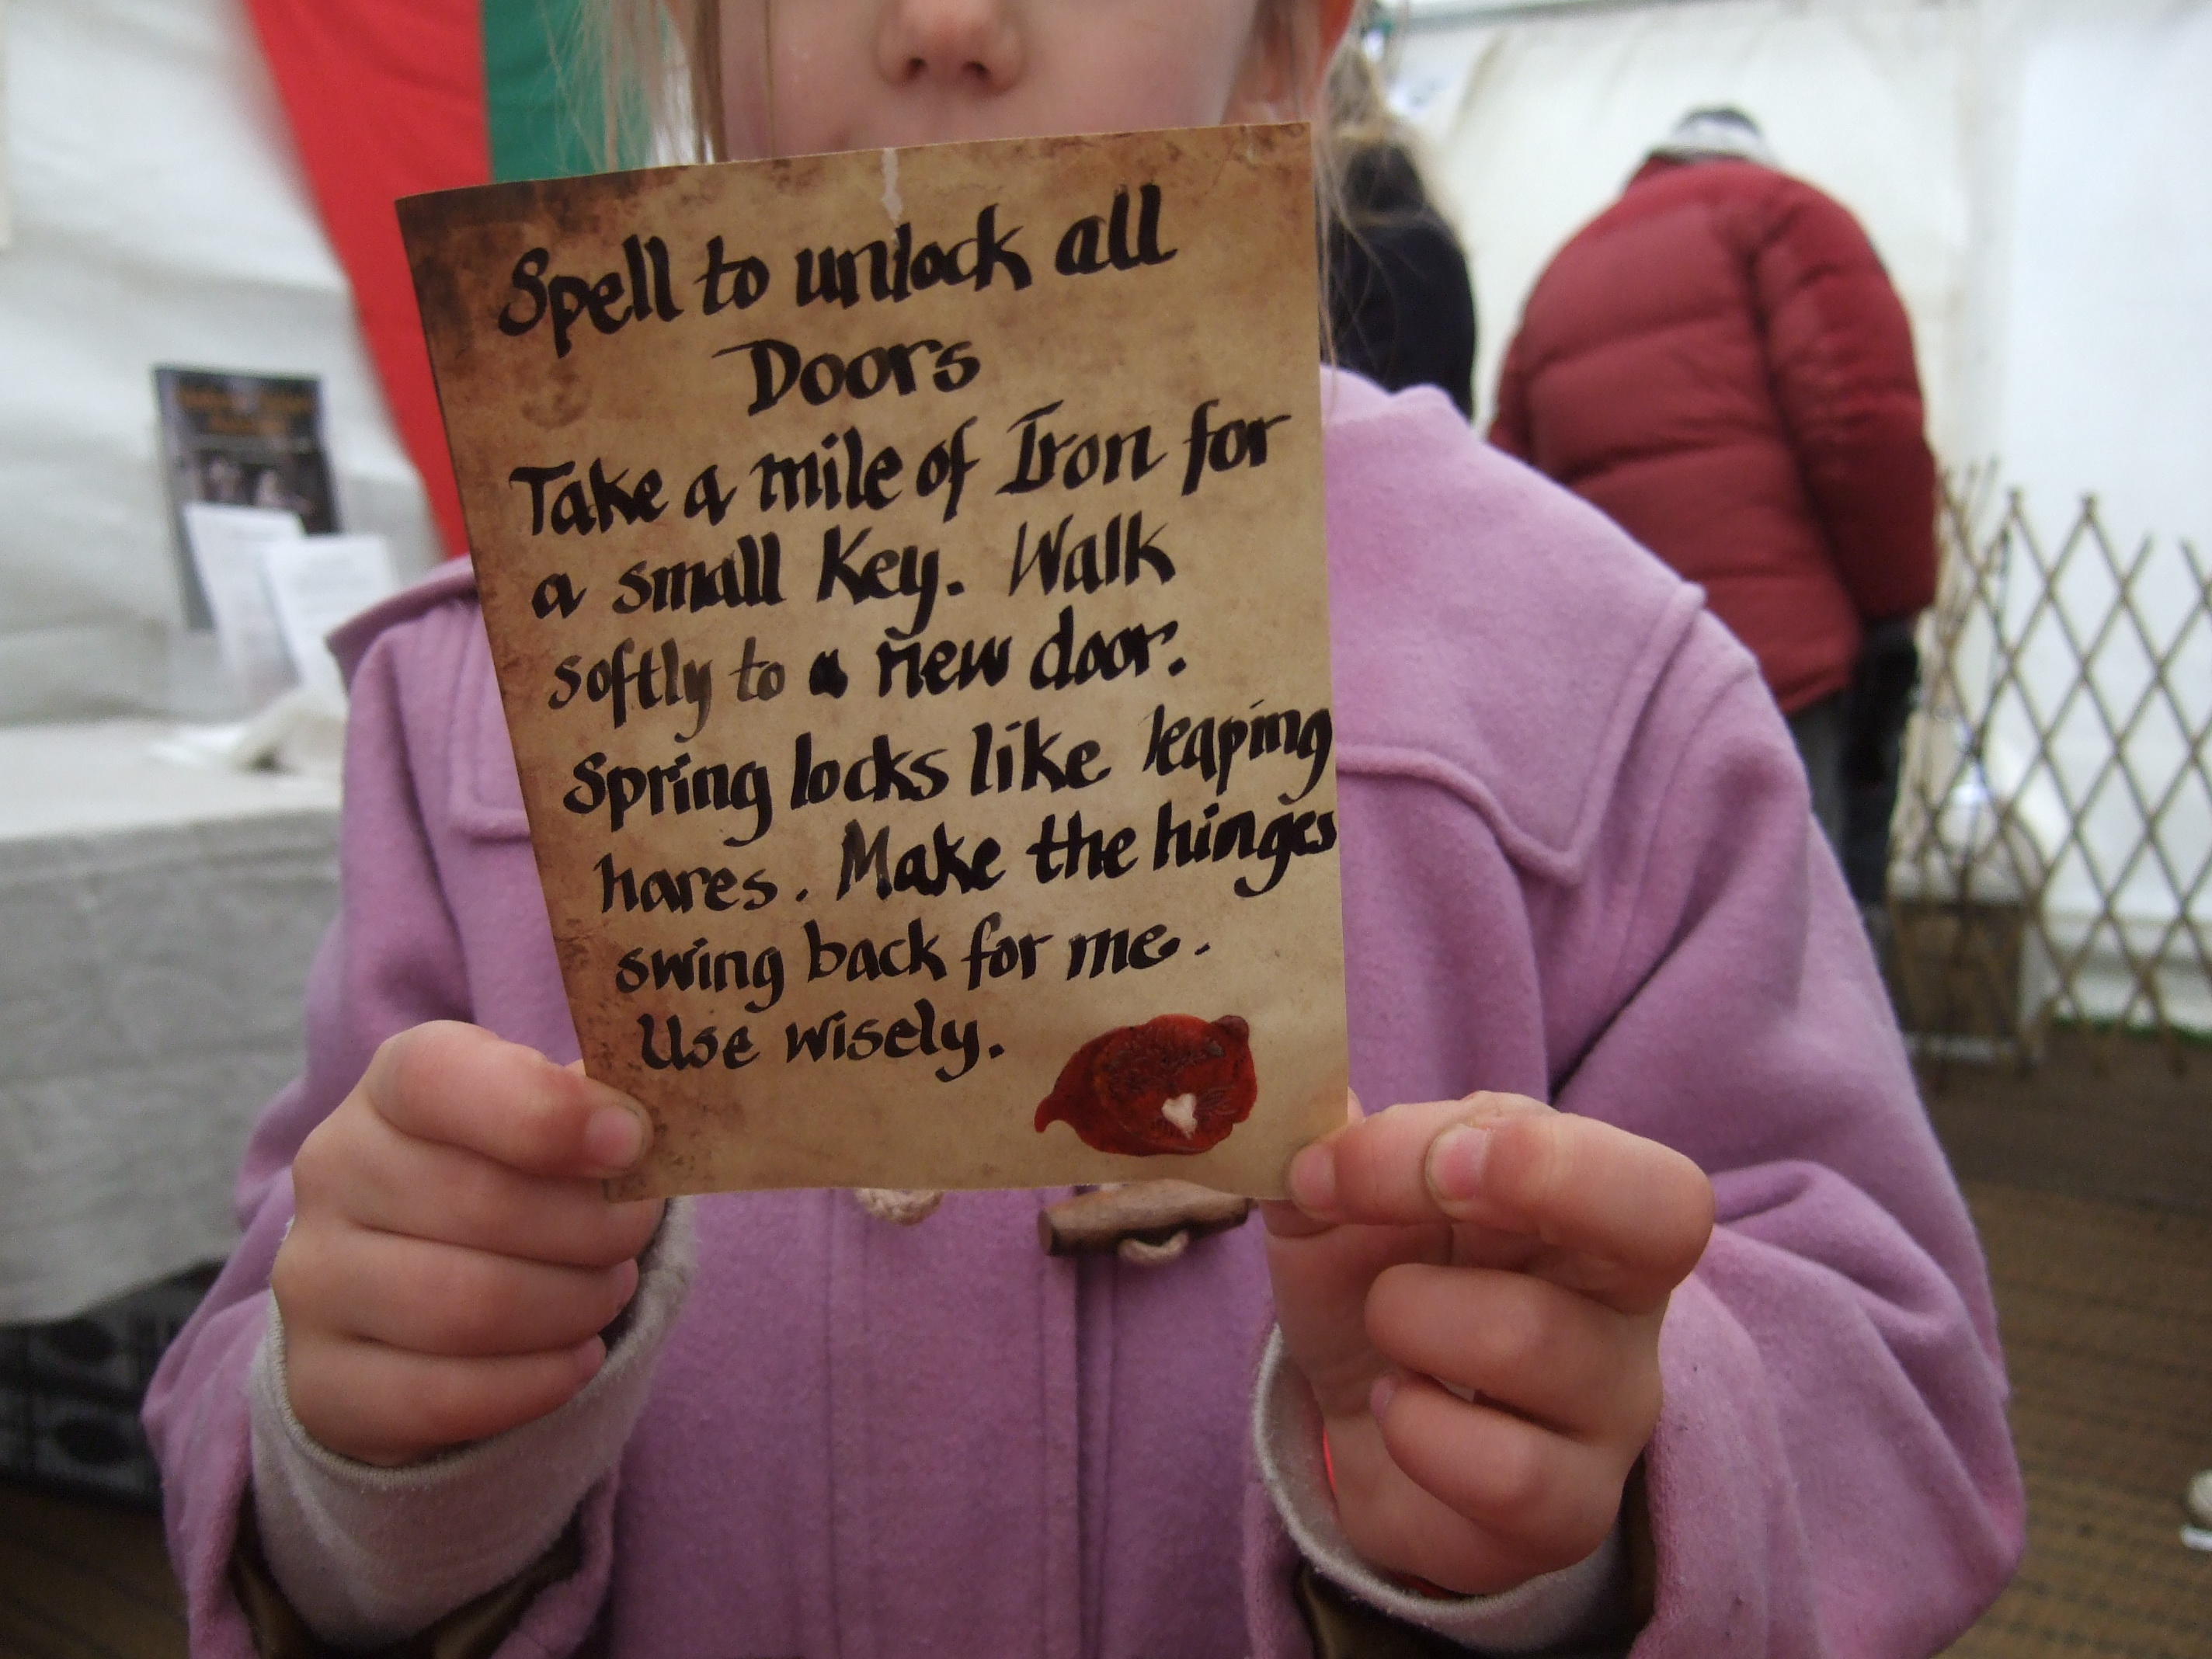 Spell to unlock all
Doors
Take a mile of Iron for
a small Key. Walk
softly to a new door.
Spring locks like leaping
hares. Make the hinges
swing back for me.
Use wisely.